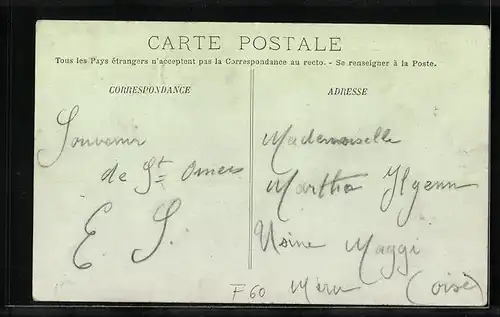 CARTE POSTALE
Tous les Pays étrangers n'acceptent pas la Correspondance au recto. - Se renseigner à la Poste.
CORRESPONDANCE
Souvenir
de St Omer
E. S.
ADRESSE
Mademoiselle
Martha
Usine Maggi
Méru (oise)
F60